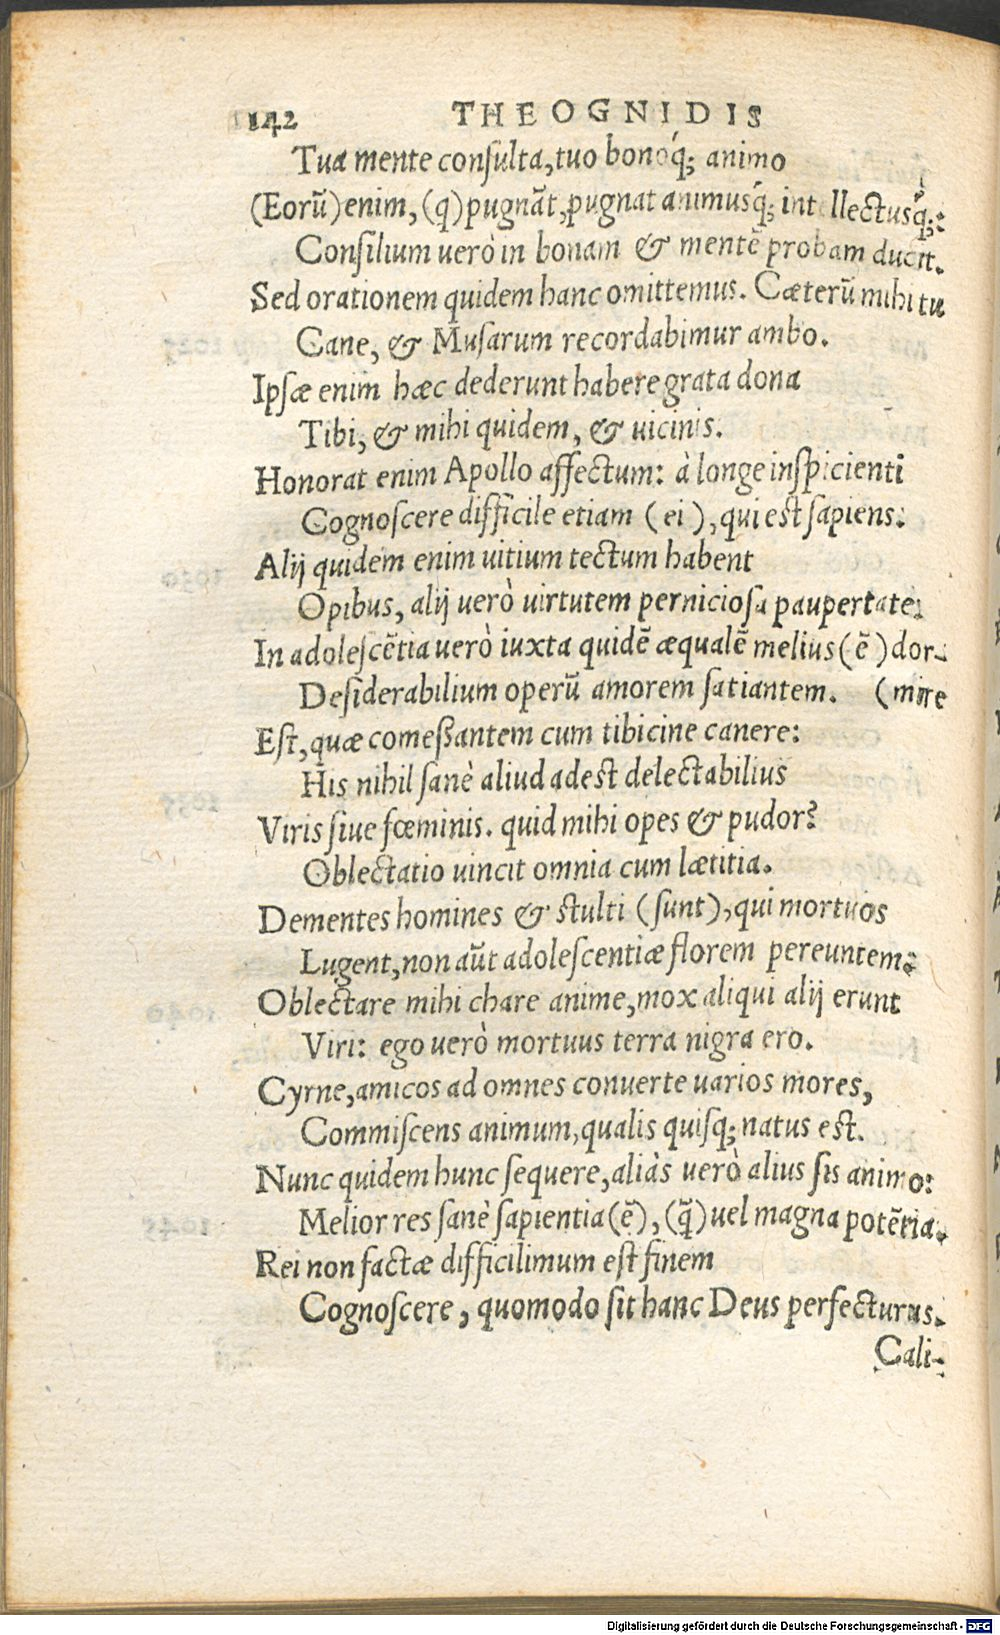 142 THEOGNIDIS
Tua mente consulta, tuo bonoq́; animo
(Eorū) enim, (q) pugnāt, pugnat animusq́; intellectusq́;:
Consilium uerò in bonam & mentē probam ducit.
Sed orationem quidem hanc omittemus. Cæterū mihi tu
Cane, & Musarum recordabimur ambo.
Ipsæ enim hæc dederunt habere grata dona
Tibi, & mihi quidem, & uicinis.
Honorat enim Apollo affectum: à longe inspicienti
Cognoscere difficile etiam (ei), qui est sapiens:
Alij quidem enim uitium tectum habent
Opibus, alij uerò uirtutem perniciosa paupertate:
In adolescētia uerò iuxta quidē æqualē melius (ē) dor-
Desiderabilium operū amorem satiantem. (mire
Est, quæ comeßantem cum tibicine canere:
His nihil sanè aliud adest delectabilius
Viris siue fœminis. quid mihi opes & pudor?
Oblectatio uincit omnia cum lætitia.
Dementes homines & stulti (sunt), qui mortuos
Lugent, non aūt adolescentiæ florem pereuntem.
Oblectare mihi chare anime, mox aliqui alij erunt
Viri: ego uerò mortuus terra nigra ero.
Cyrne, amicos ad omnes conuerte uarios mores,
Commiscens animum, qualis quisq; natus est.
Nunc quidem hunc sequere, aliàs uerò alius sis animo:
Melior res sanè sapientia (ē), (q̃) uel magna potētia.
Rei non factæ difficilimum est finem
Cognoscere, quomodo sit hanc Deus perfecturus.
Cali-
Digitalisierung gefördert durch die Deutsche Forschungsgemeinschaft - DFG